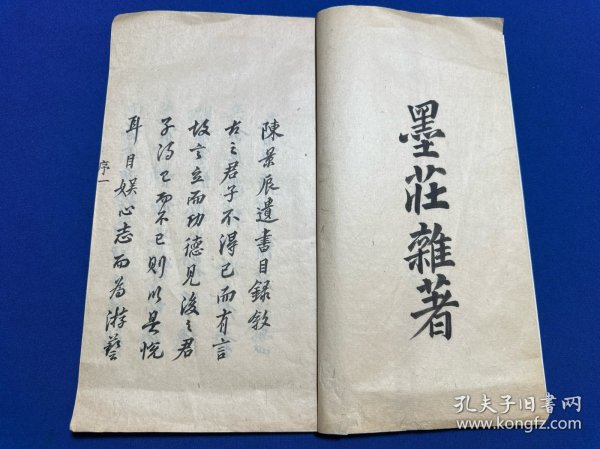 墨莊雜著
陳景辰遺書目錄敘
古之君子不得已而有言
故言立而功德見後之君
子得已而不已則以是悅
耳目娛心志而為游藝
序一
孔夫子旧书网
www.kongfz.com